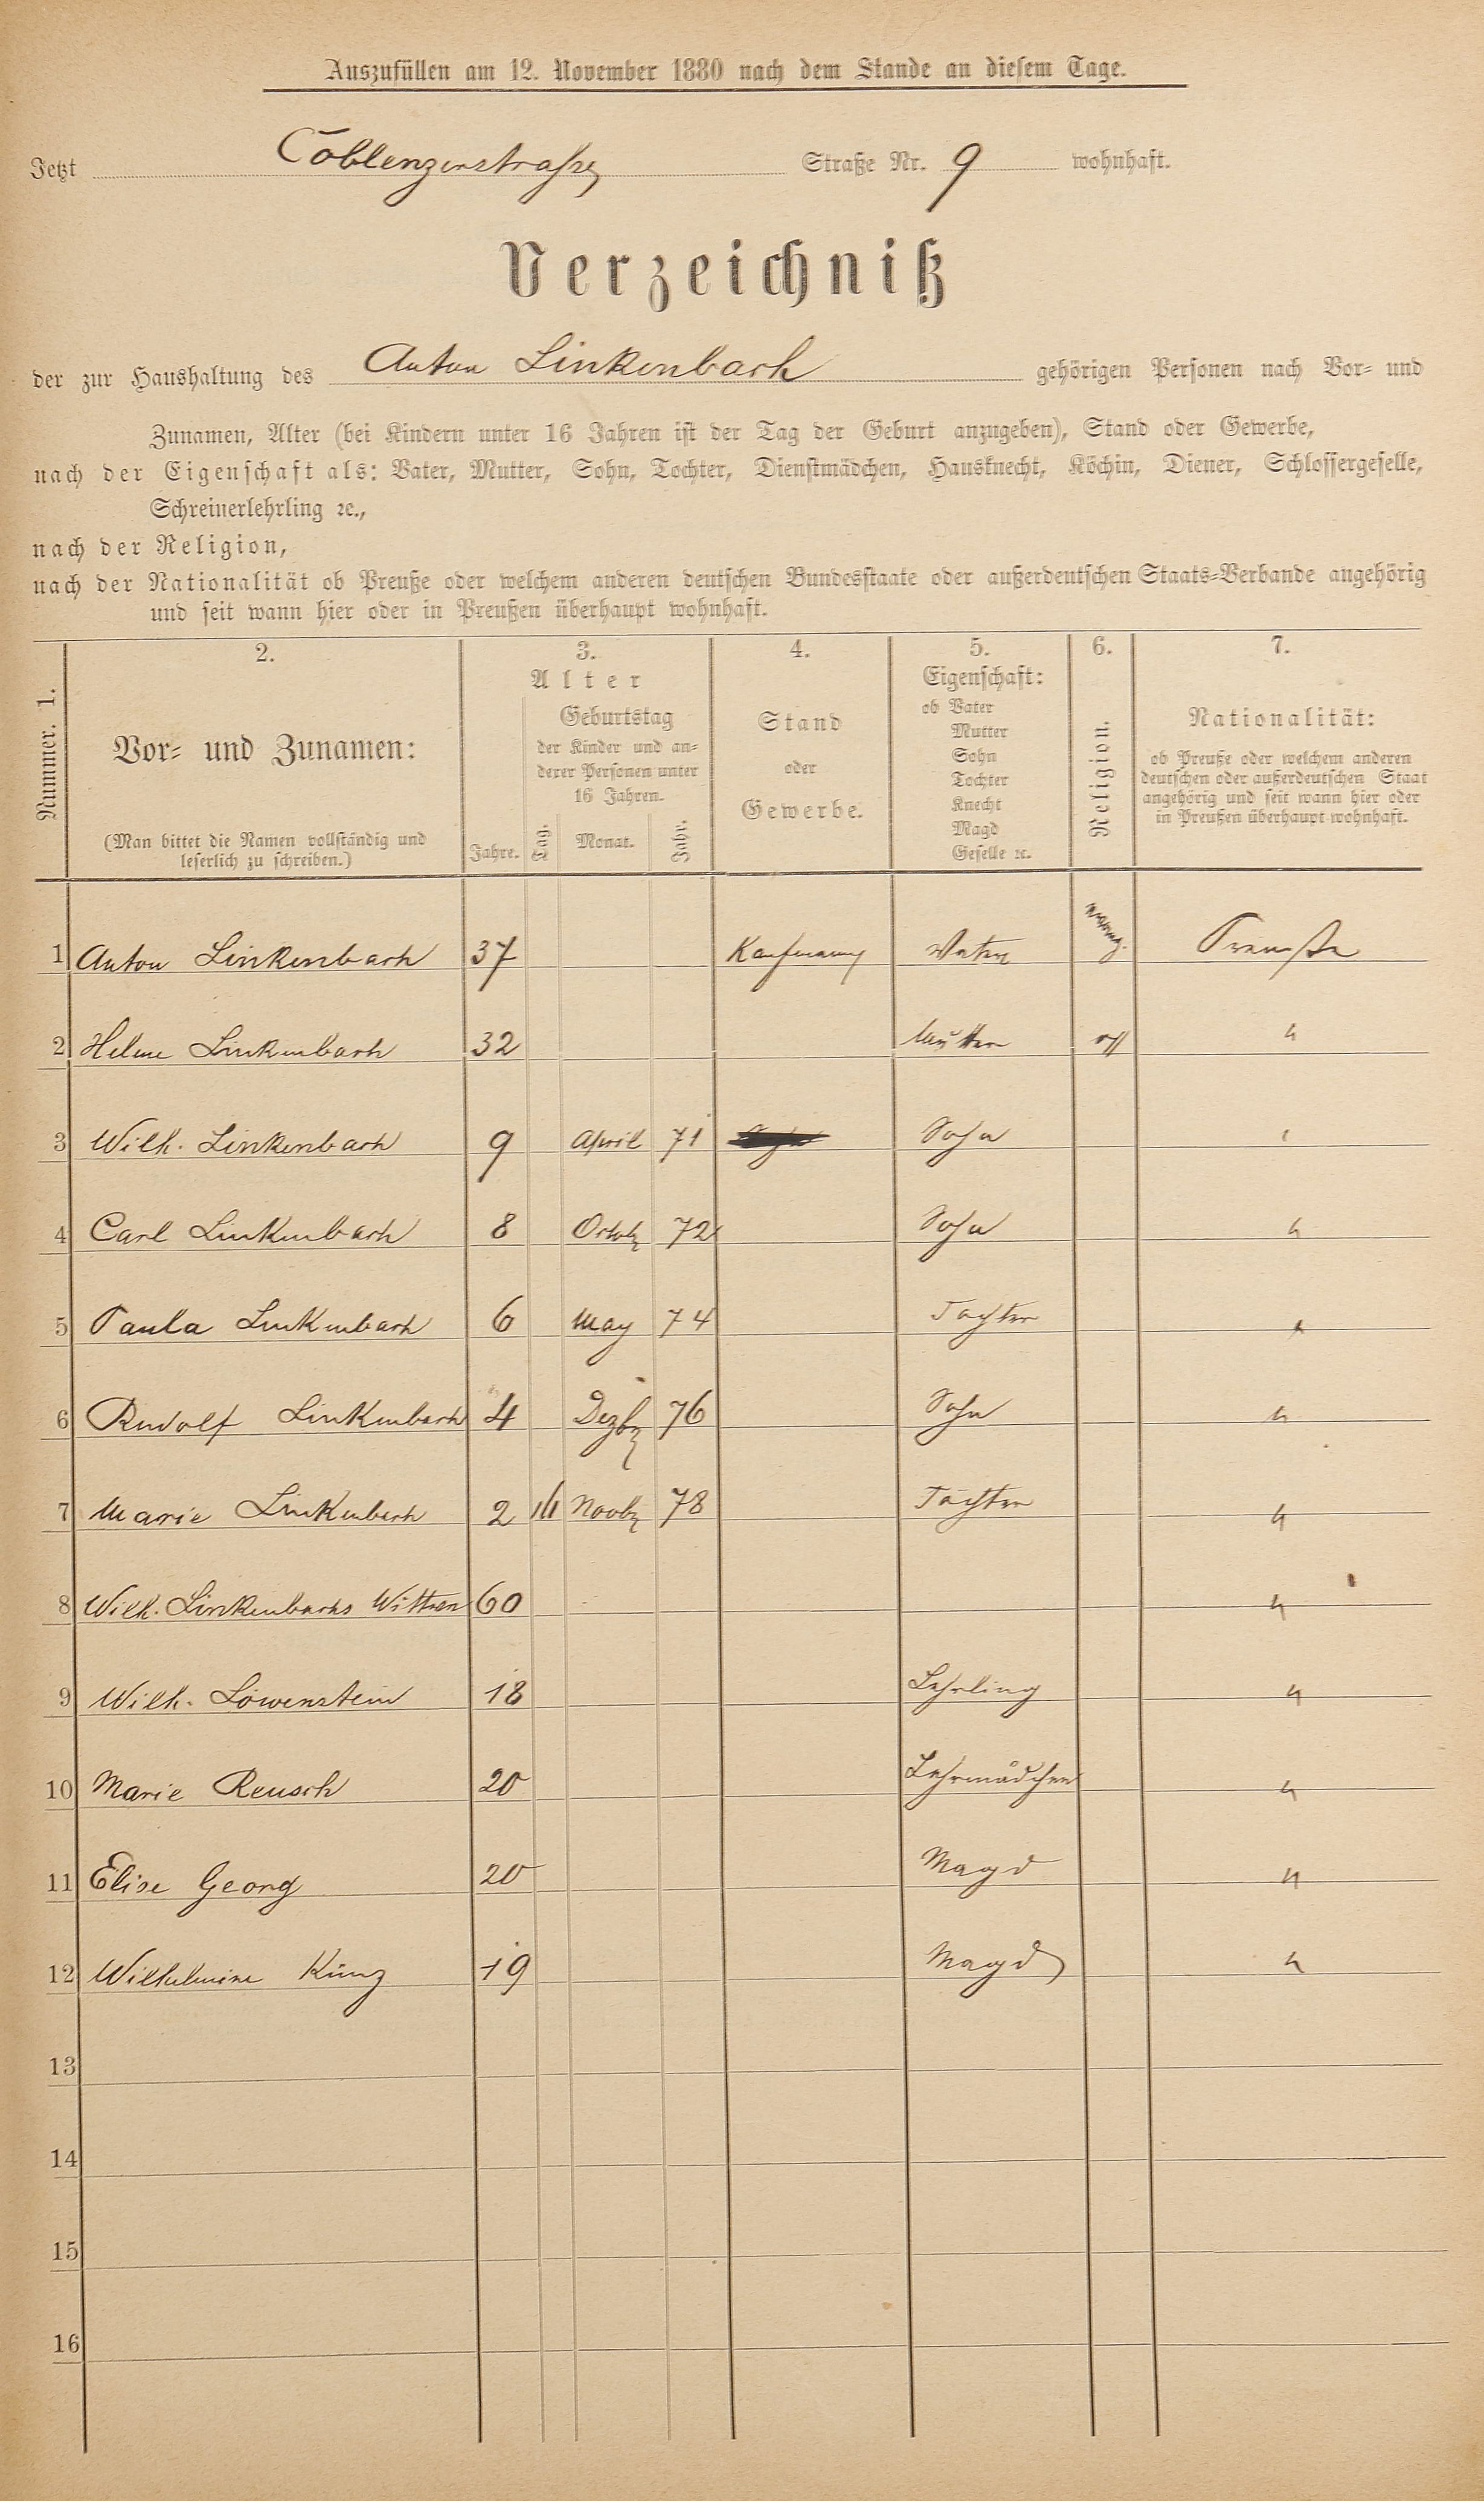 Auszufüllen am 12. November 1880 nach dem Stande an diesem Tage.
Jetzt Coblenzerstraße Straße Nr. 9 wohnhaft.
Verzeichniß
der zur Haushaltung des Anton Linkenbach gehörigen Personen nach Vor- und
Zunamen, Alter (bei Kindern unter 16 Jahren ist der Tag der Geburt anzugeben), Stand oder Gewerbe,
nach der Eigenschaft als: Vater, Mutter, Sohn, Tochter, Dienstmädchen, Hausknecht, Köchin, Diener, Schlossergeselle,
Schreinerlehrling ꝛc.,
nach der Religion,
nach der Nationalität ob Preuße oder welchem anderen deutschen Bundesstaate oder außerdeutschen Staats-Verbande angehörig
und seit wann hier oder in Preußen überhaupt wohnhaft.
Nummer. 1.
2.
Vor- und Zunamen:
(Man bittet die Namen vollständig und
leserlich zu schreiben.)
3.
Alter
Jahre.
Geburtstag
der Kinder und an-
derer Personen unter
16 Jahren.
Tag. Monat. Jahr.
4.
Stand
oder
Gewerbe.
5.
Eigenschaft:
ob Vater
Mutter
Sohn
Tochter
Knecht
Magd
Geselle ꝛc.
6.
Religion.
7.
Nationalität:
ob Preuße oder welchem anderen
deutschen oder außerdeutschen Staat
angehörig und seit wann hier oder
in Preußen überhaupt wohnhaft.
1 Anton Linkenbach 37 Kaufmann Vater Preuße
2 Helene Linkenbach 32 Mutter "
3 Wilh. Linkenbach 9 April 71 Sohn "
4 Carl Linkenbach 8 Octob 72 Sohn "
5 Paula Linkenbach 6 May 74 Tochter "
6 Rudolf Linkenbach 4 Dezbr 76 Sohn "
7 Marie Linkenbach 2 Novbr 78 Tochter "
8 Wilh. Linkenbachs Wittwe 60 "
9 Wilh. Löwenstein 18 Lehrling "
10 Marie Reusch 20 Lehrmädchen "
11 Elise Georg 20 Magd "
12 Wilhelmine Kunz 19 Magd "
13
14
15
16